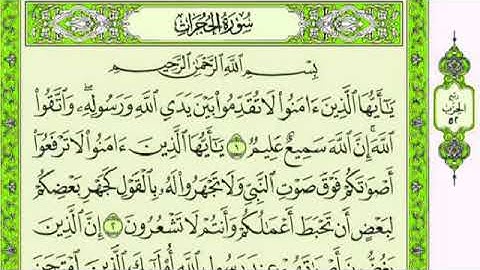 سُورَةُ الْحُجُرَاتِ
بِسْمِ اللَّهِ الرَّحْمَٰنِ الرَّحِيمِ
يَٰٓأَيُّهَا الَّذِينَ ءَامَنُوا لَا تُقَدِّمُوا بَيْنَ يَدَيِ اللَّهِ وَرَسُولِهِۦ وَاتَّقُوا
اللَّهَ إِنَّ اللَّهَ سَمِيعٌ عَلِيمٌ ١ يَٰٓأَيُّهَا الَّذِينَ ءَامَنُوا لَا تَرْفَعُوا
أَصْوَٰتَكُمْ فَوْقَ صَوْتِ النَّبِيِّ وَلَا تَجْهَرُوا لَهُۥ بِالْقَوْلِ كَجَهْرِ بَعْضِكُمْ
لِبَعْضٍ أَن تَحْبَطَ أَعْمَٰلُكُمْ وَأَنتُمْ لَا تَشْعُرُونَ ٢ إِنَّ الَّذِينَ
يَغُضُّونَ أَصْوَٰتَهُمْ عِندَ رَسُولِ اللَّهِ أُولَٰٓئِكَ الَّذِينَ امْتَحَنَ
ربع
الحزب
٥٢